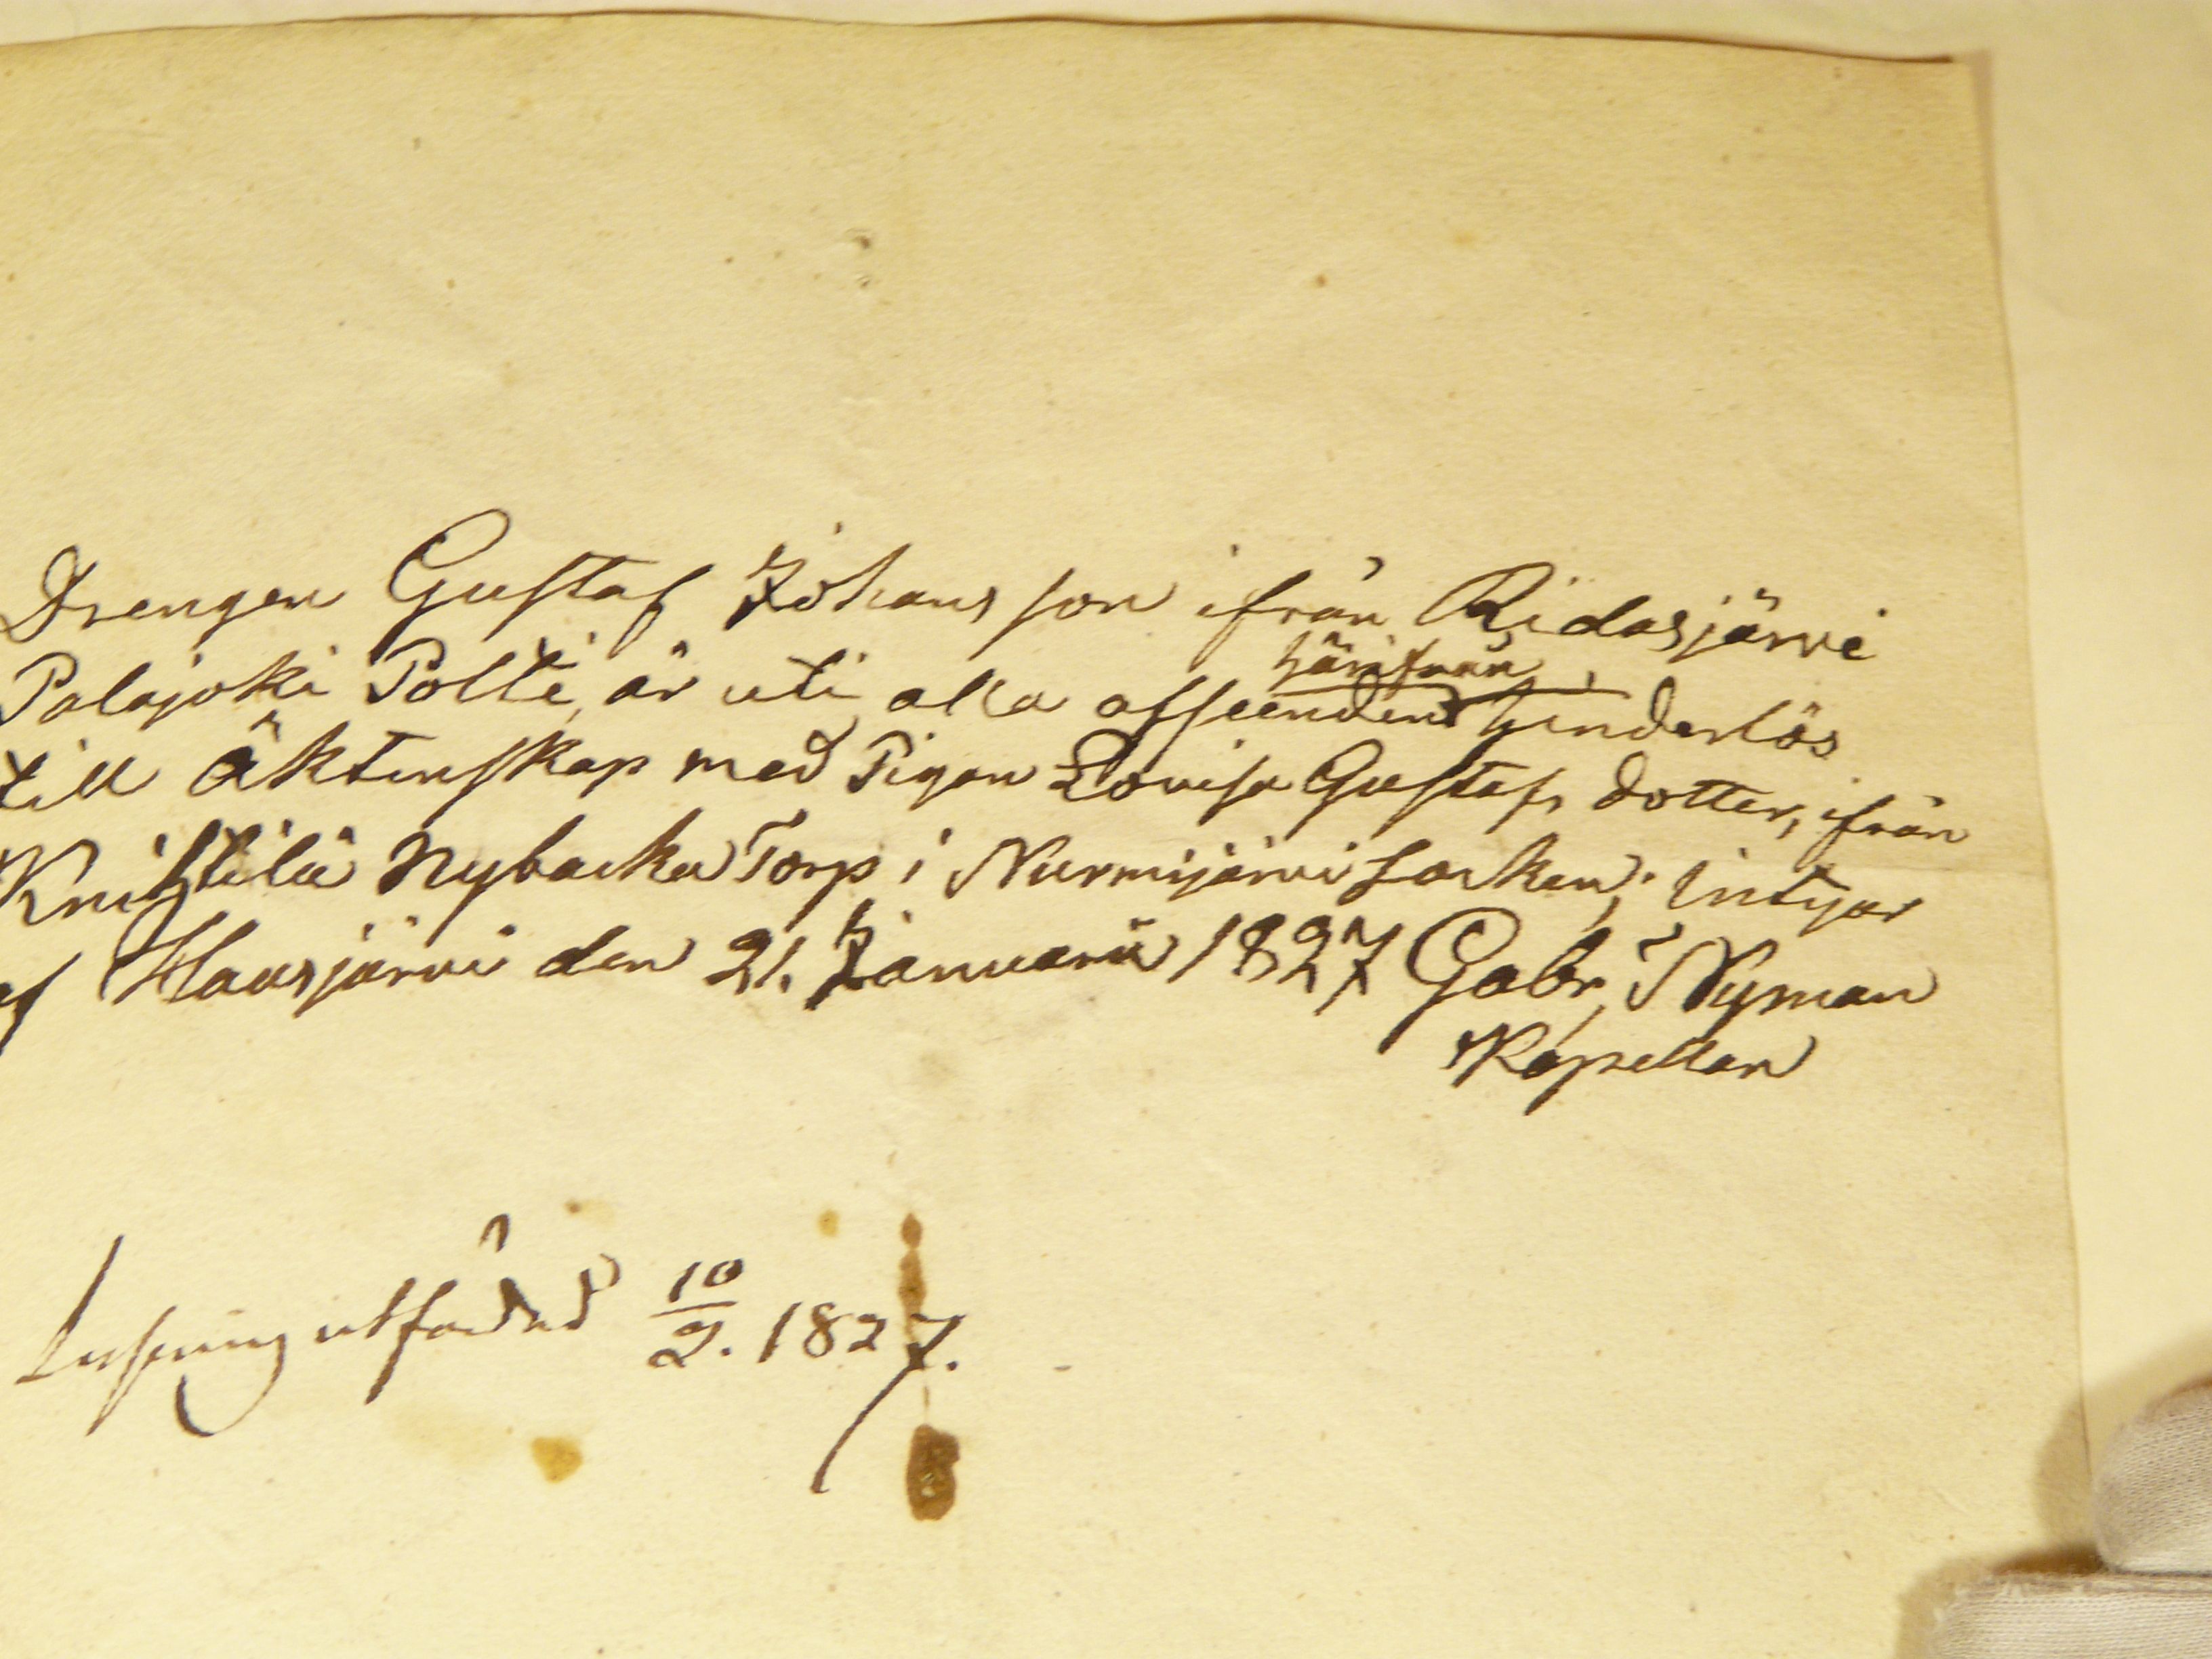 Drengen Gustaf Johansson ifrån Ridasjärvi
Palajoki Poltti, är uti alla afseenden härifrån hinderlös
till äktenskap med Pigan Lovisa Gustafs dotter, ifrån
Nybacka Torp i Nurmijärvi Socken; intygar
af Hausjärvi den 21. Januarii 1827 Gabr, Nyman
Kapellan
Lysning utfärdad 10/2. 1827.